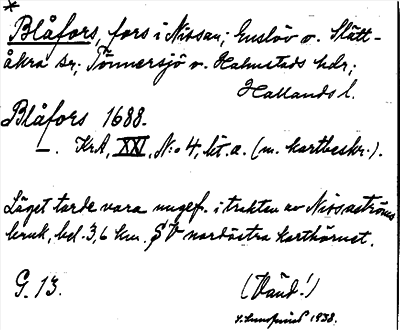 *
Blåfors, fors i Nissan; Enslöv o. Slätt-
åkra snr; Tönnersjö o. Halmstads hdr;
Hallands l.
Blåfors 1688.
—. KrA, XXI, N:o 4, lit. a. (m. kartbeskr.).
Läget torde vara ungef. i trakten av Nissaströms
bruk, bel. 3,6 km. SV nordöstra karthörnet.
G. 13.
(Vänd!)
1938.